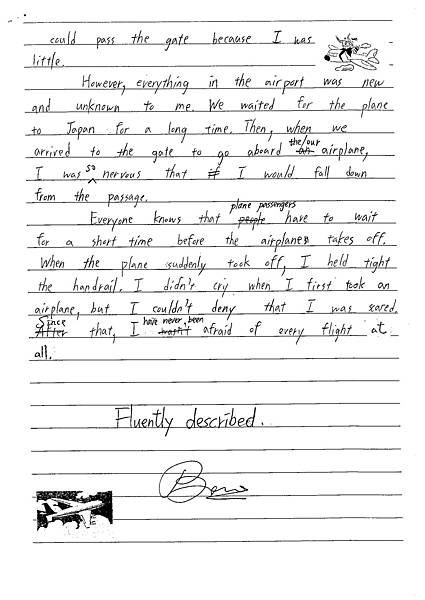 could pass the gate because I was
little.
However, everything in the airport was new
and unknown to me. We waited for the plane
to Japan for a long time. Then, when we
the/our
arrived to the gate to go aboard an airplane,
so
I was nervous that if I would fall down
from the passage.
plane passengers
Everyone knows that people have to wait
for a short time before the airplanes takes off.
When the plane suddenly took off, I held tight
the handrail. I didn't cry when I first took an
airplane, but I couldn't deny that I was scared.
Since have never been
After that, I wasn't afraid of every flight at
all.
Fluently described.